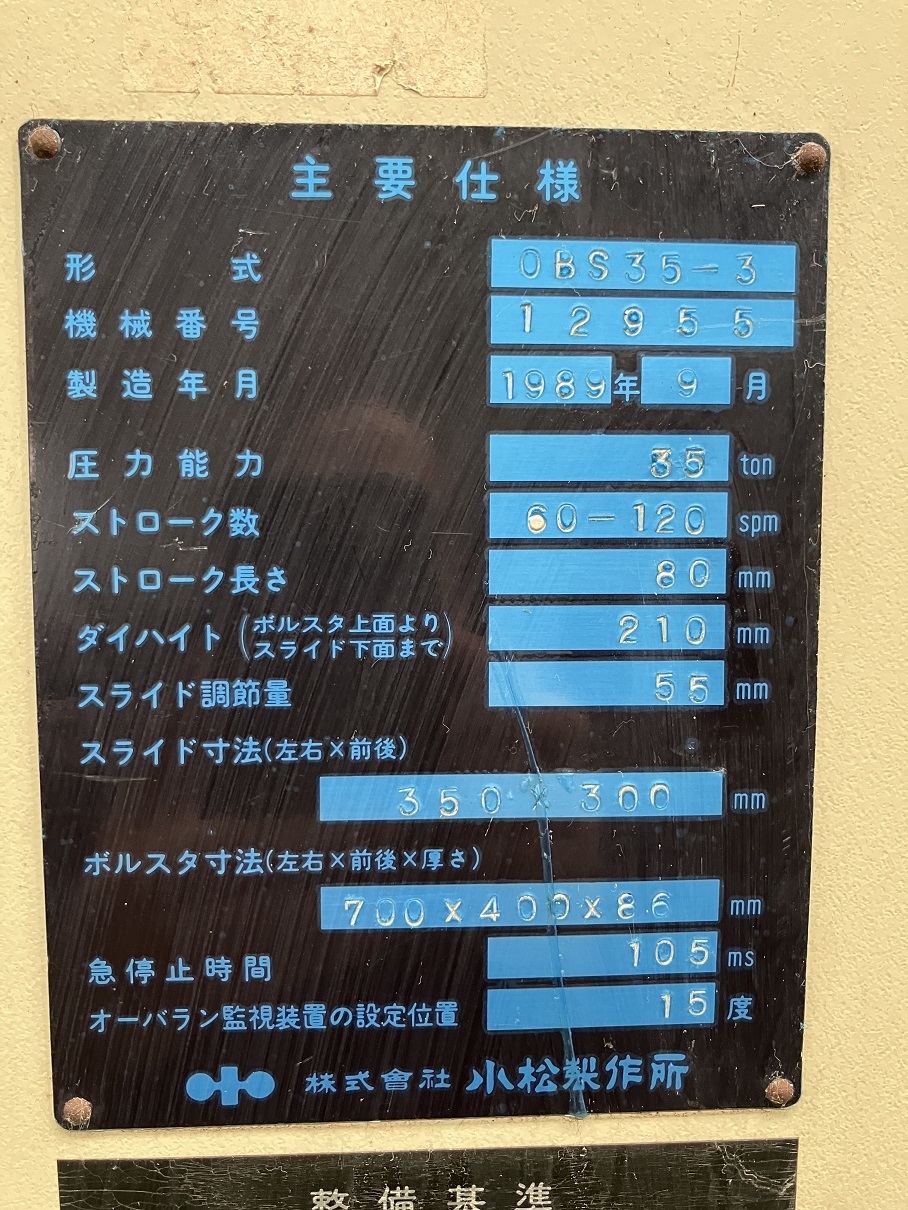 主要仕様
形式 OBS35-3
機械番号 12955
製造年月 1989年9月
圧力能力 35 ton
ストローク数 60-120 spm
ストローク長さ 80 mm
ダイハイト(ボルスタ上面より スライド下面まで) 210 mm
スライド調節量 55 mm
スライド寸法(左右×前後)
350×300 mm
ボルスタ寸法(左右×前後×厚さ)
700×400×86 mm
急停止時間 105 ms
オーバラン監視装置の設定位置 15 度
株式會社 小松製作所
整備基準